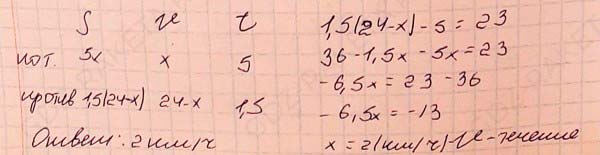 S v t
пот. 5x x 5
против 1,5(24-x) 24-x 1,5
Ответ: 2 км/ч
1,5(24-x)-5=23
36-1,5x-5x=23
-6,5x=23-36
-6,5x=-13
x=2(км/ч)-v-течение